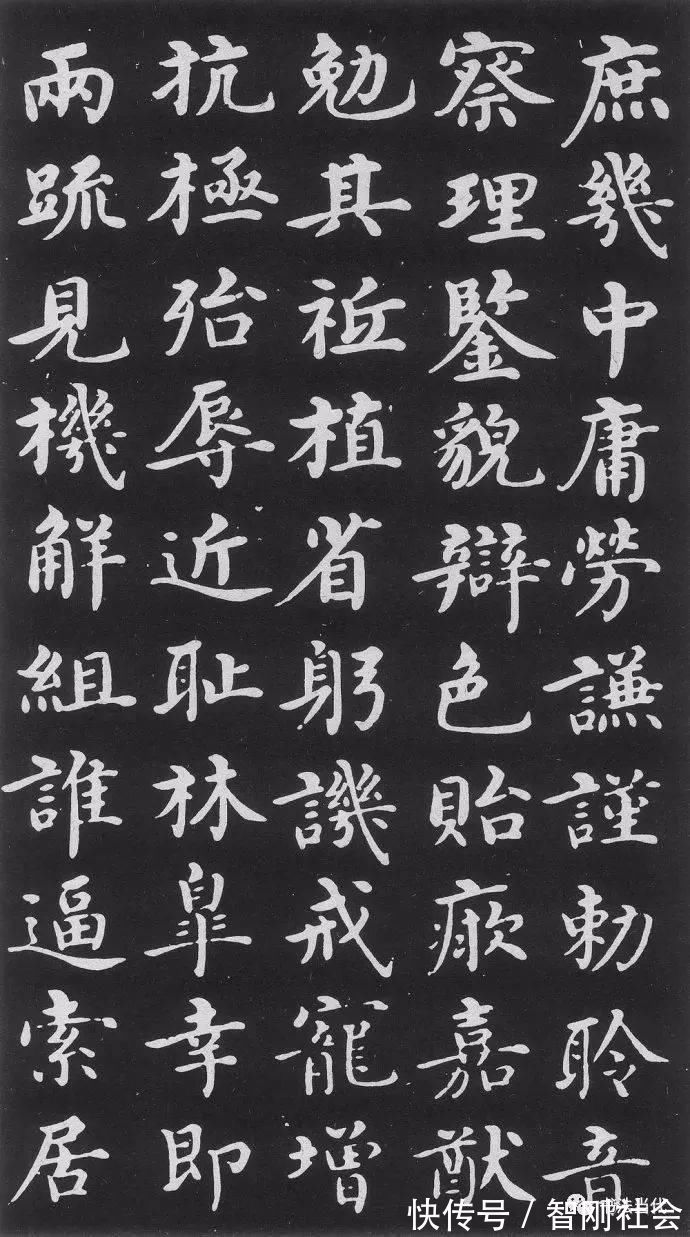 庶幾中庸勞謙謹勅聆音
察理鑒貌辯色貽厥嘉猷
勉其祗植省躬譏戒寵增
抗極殆辱近耻林皐幸即
兩疏見機解組誰逼索居
书法当代
快传号 / 智刚社会